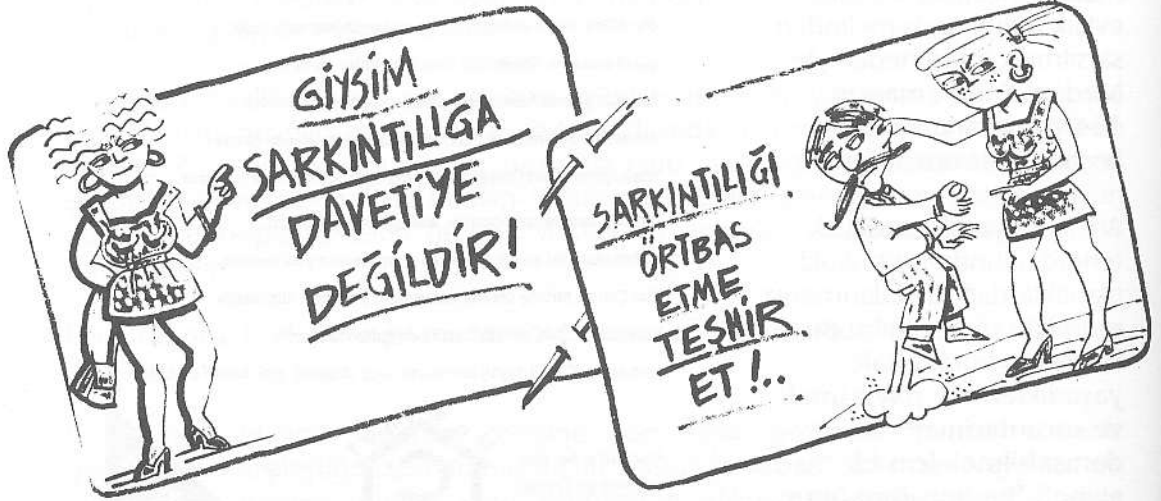 GİYSİM
SARKINTILIĞA
DAVETİYE
DEĞİLDİR!
SARKINTILIĞI
ÖRTBAS
ETME,
TEŞHİR
ET!..